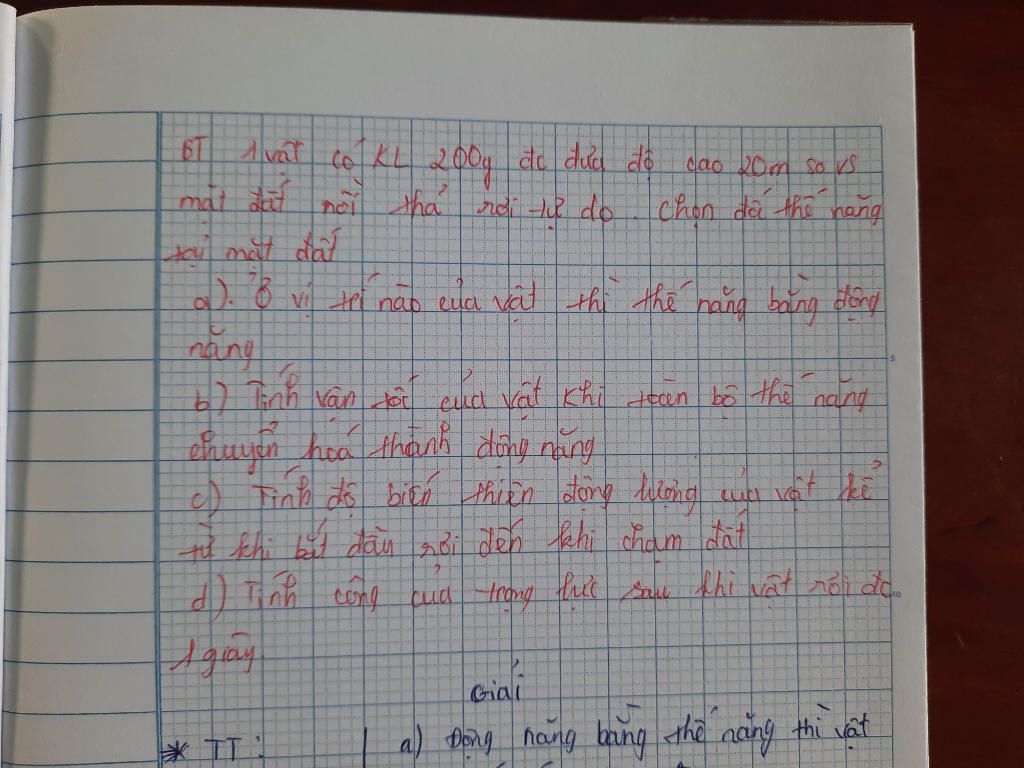 BT 1 vật có KL 200g đc đưa độ cao 20m so vs
mặt đất rồi thả rơi tự do. Chọn đổi thế năng
tại mặt đất
a). Ở vị trí nào của vật thì thế năng bằng động
năng
b) Tính vận tốc của vật khi toàn bộ thế năng
chuyển hoá thành động năng
c) Tính độ biến thiên động lượng của vật kể
từ khi bắt đầu rơi đến khi chạm đất
d) Tính công của trọng lực sau khi vật rơi đc
1 giây
Giải
* TT: a) Động năng bằng thế năng thì vật